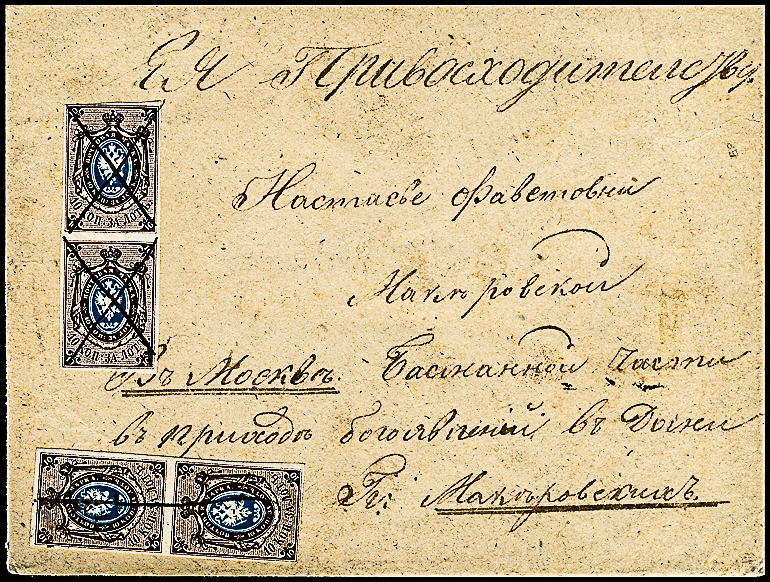 Ея Привосходительству
Настасье Фаветовни
Макѣровской
Въ Москвѣ. Басманной Части
въ приходѣ богоявленій въ Домѣ
Гг: Макѣровскихъ.
10 КОП. ЗА ЛОТ
10 КОП. ЗА ЛОТ